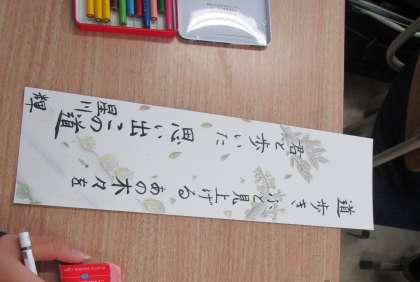 道歩きふと見上げるあの木々を
君と歩いた思い出この道
星川
輝